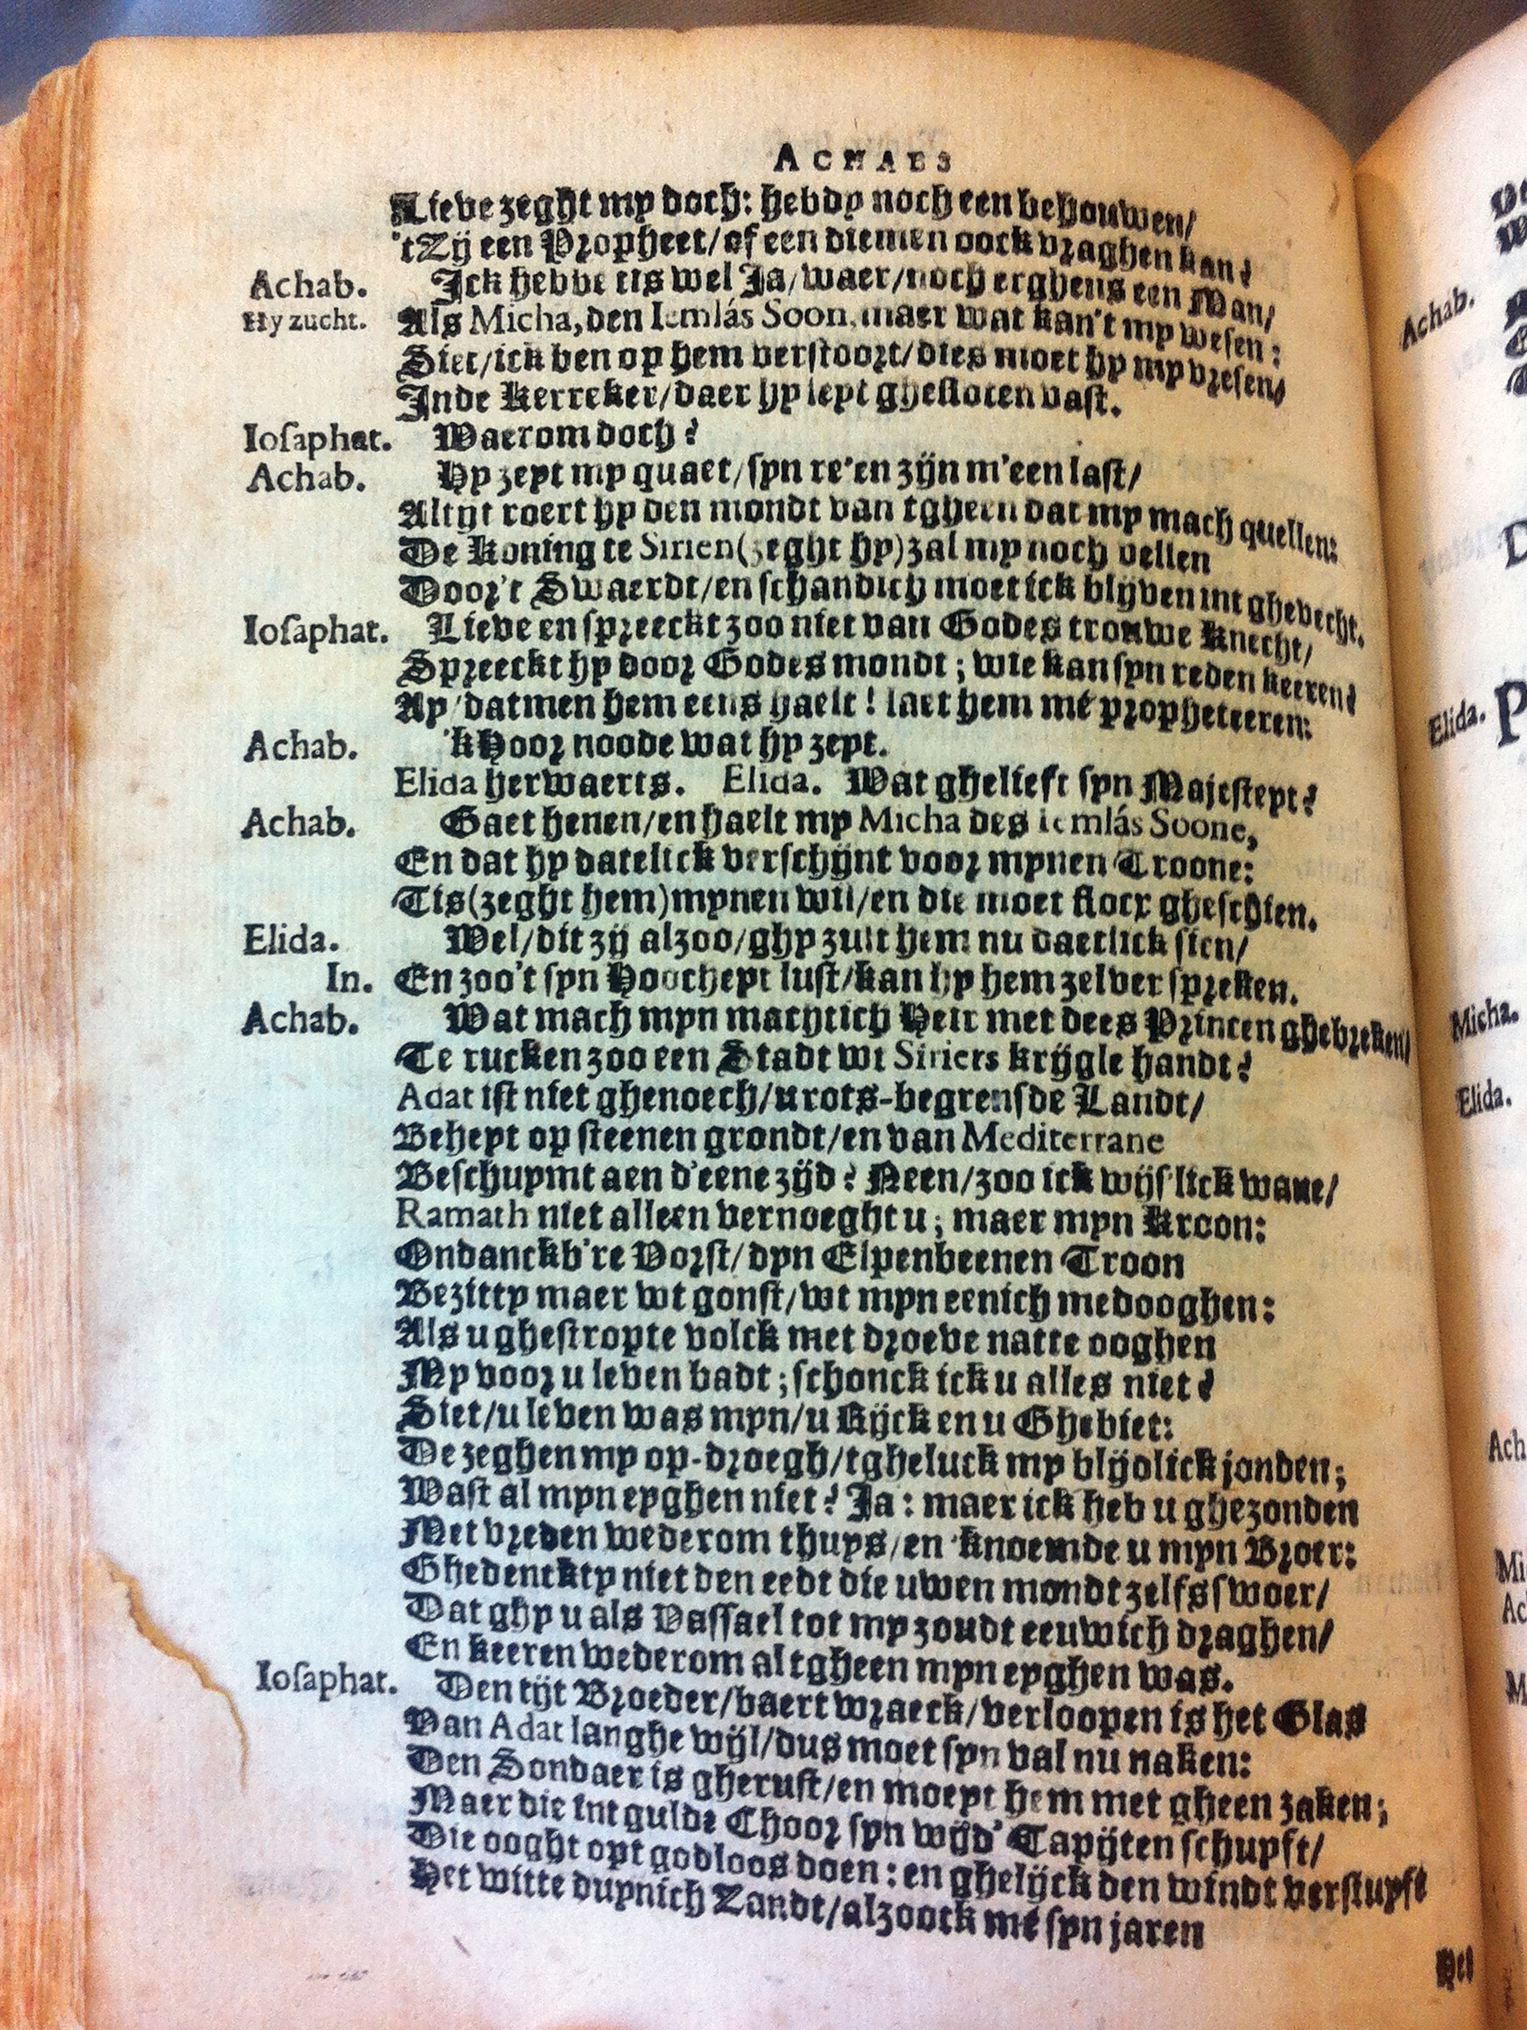 ACHABS
Lieve zeght my doch: hebdy noch een behouwen/
'tZy een Propheet/of een diemen oock vraghen kan?
Achab. Ick hebbe tis wel Ja/waer/noch erghens een Man/
Hy zucht. Als Micha, den Iemlás Soon, maer wat kan't my wesen:
Siet/ick ben op hem verstoort/dies moet hy my vresen/
Inde Kerreker/daer hy leyt ghesloten vast.
Iosaphat. Waerom doch?
Achab. Hy zeyt my quaet/syn re'en zijn m'een last/
Altijt roert hy den mondt van tgheen dat my mach quellen:
De Koning te Sirien(zeght hy)zal my noch vellen
Door't Swaerdt/en schandich moet ick blijven int ghevecht.
Iosaphat. Lieve en spreeckt zoo niet van Godes trouwe Knecht/
Spreeckt hy door Godes mondt; wie kan syn reden keeren?
Ay/datmen hem eens haelt! laet hem mé propheteeren:
Achab. 'kHoor noode wat hy zeyt.
Elida herwaerts. Elida. Wat ghelieft syn Majesteyt?
Achab. Gaet henen/en haelt my Micha des Iemlás Soone,
En dat hy datelick verschijnt voor mynen Troone:
Tis(zeght hem)mynen wil/en die moet flocx gheschien.
Elida. Wel/dit zy alzoo/ghy zult hem nu daetlick sien/
In. En zoo't syn Hoocheyt lust/kan hy hem zelver spreken.
Achab. Wat mach myn machtich Heir met dees Princen ghebreken/
Te rucken zoo een Stadt wt Siriers krijgle handt?
Adat ist niet ghenoech/u rots-begrensde Landt/
Beheyt op steenen grondt/en van Mediterrane
Beschuymt aen d'eene zijd? Neen/zoo ick wijs'lick wane/
Ramath niet alleen vernoeght u; maer myn Kroon:
Ondanckb're Vorst/dyn Elpenbeenen Troon
Bezitty maer wt gonst/wt myn eenich medooghen:
Als u ghestropte volck met droeve natte ooghen
My voor u leven badt; schonck ick u alles niet?
Siet/u leven was myn/u Rijck en u Ghebiet:
De zeghen my op-droegh/tgheluck my blijdlick jonden;
Wast al myn eyghen niet? Ja: maer ick heb u ghezonden
Met vreden wederom thuys/en 'knoemde u myn Broer:
Ghedencktty niet den eedt die uwen mondt zelfs swoer/
Dat ghy u als Vassael tot my zoudt eeuwich draghen/
En keeren wederom al tgheen myn eyghen was.
Iosaphat. Den tijt Broeder/baert wraeck/verloopen is het Glas
Van Adat langhe wijl/dus moet syn val nu naken:
Den Sondaer is gherust/en moeyt hem met gheen zaken;
Maer die int gulde Choor syn wijd' Tapijten schuyft/
Die ooght opt godloos doen: en ghelijck den windt verstuyft
Het witte duynich Zandt/alzoock mé syn jaren
Achab.
Elida.
Micha.
Elida.